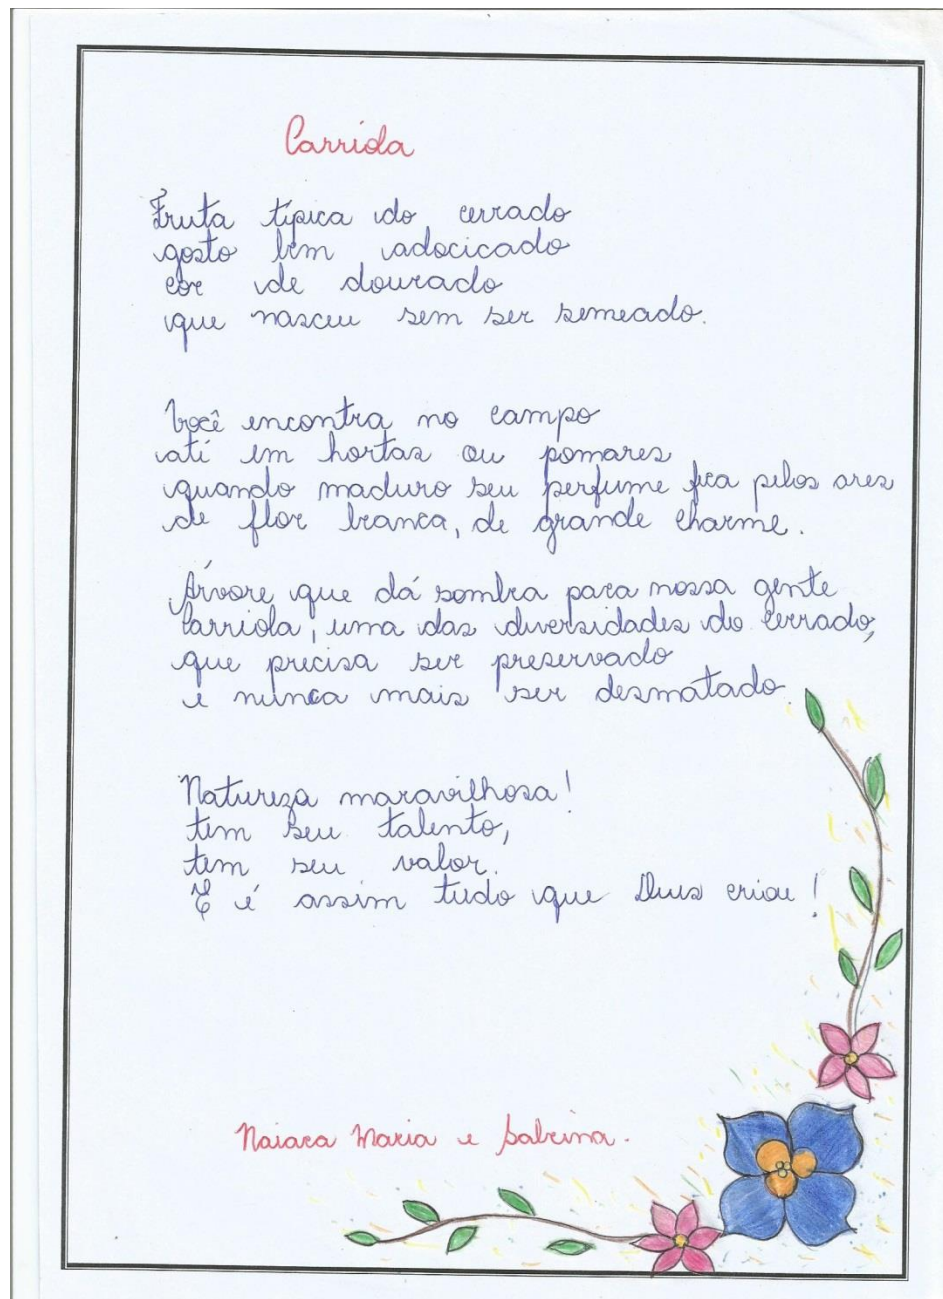 Carriola
Fruta típica do cerrado
gosto bem adocicado
cor de dourado
que nasceu sem ser semeado.
Você encontra no campo
até em hortas ou pomares
quando maduro seu perfume fica pelos ares
de flor branca, de grande charme.
Árvore que dá sombra para nossa gente
Carriola, uma das diversidades do cerrado,
que precisa ser preservado
e nunca mais ser desmatado.
Natureza maravilhosa!
tem seu talento,
tem seu valor.
E é assim tudo que Deus criou!
Naiara Maria e Sabrina.